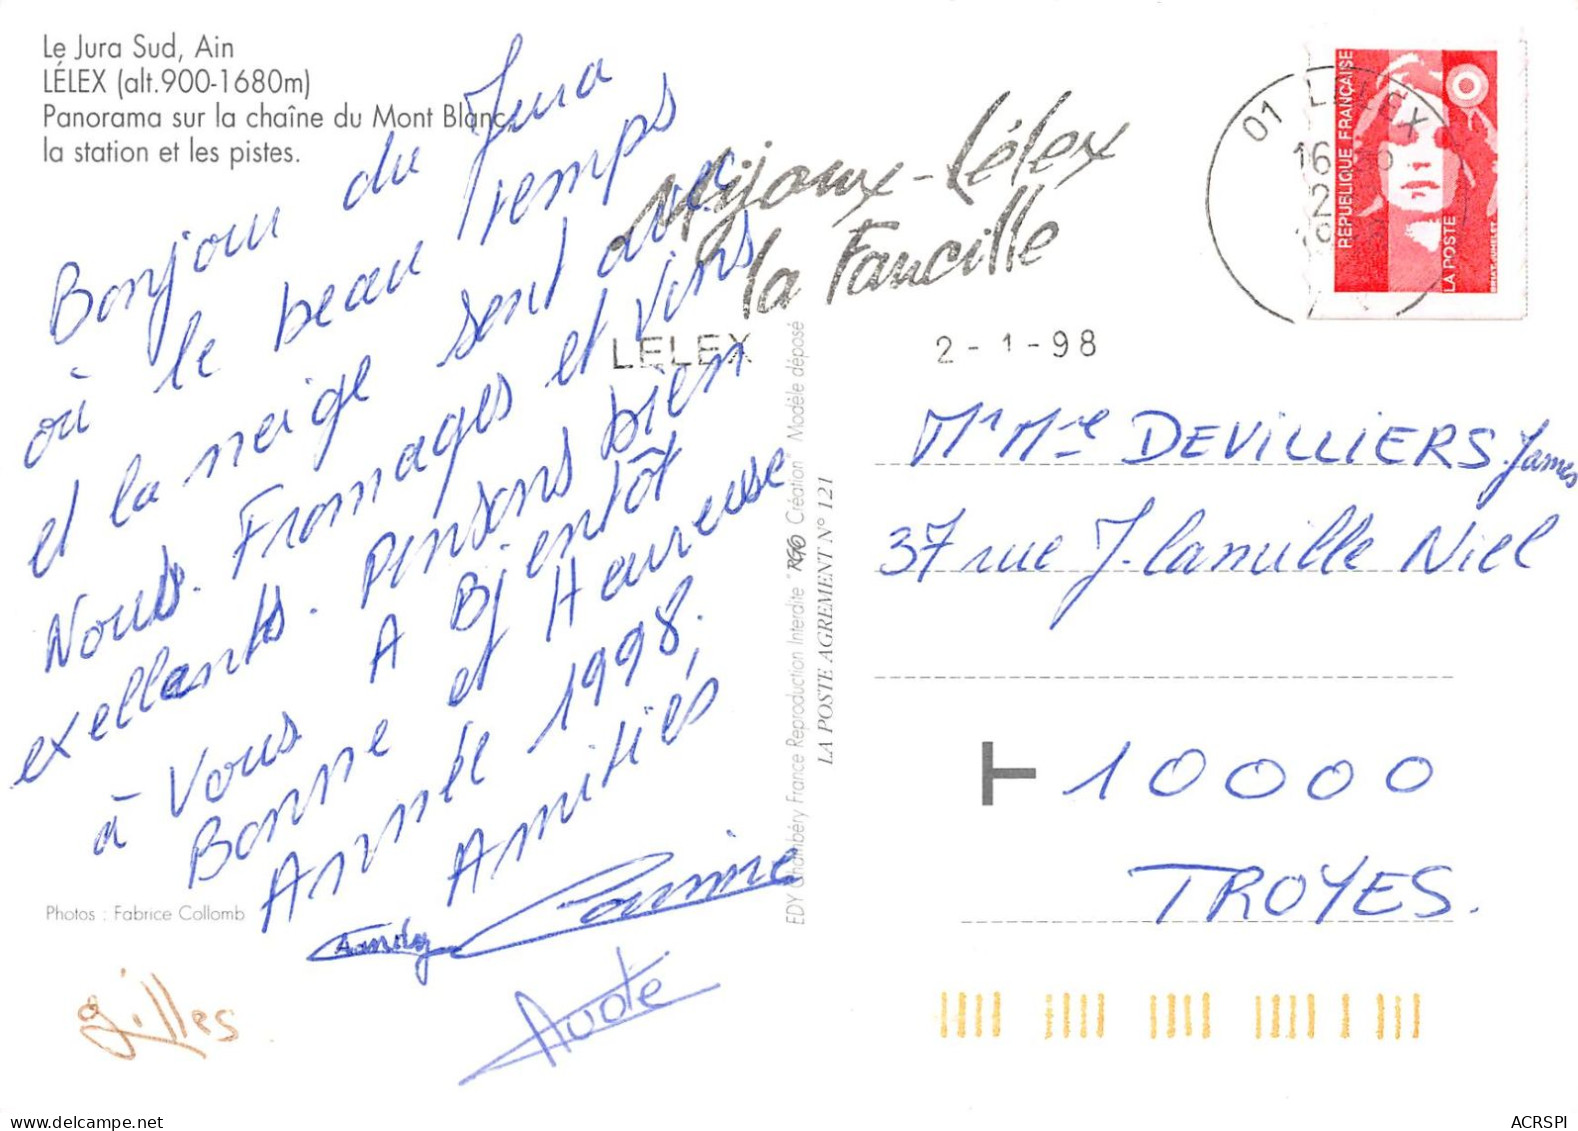 Le Jura Sud, Ain
LÉLEX (alt.900-1680m)
Panorama sur la chaîne du Mont Blanc,
la station et les pistes.
Bonjour du Jura
où le beau temps
et la neige sont avec
Nous. Fromages et Vins
exellants. Pensons bien
à Vous A Bientôt
Bonne et Heureuse
Année 1998.
Amitiés
Corinne
Andy
Aude
gilles
Photos : Fabrice Collomb
EDY Chambéry France Reproduction Interdite "Création" Modèle déposé
LA POSTE AGREMENT N° 121
Mijoux-Lélex
la Faucille
LELEX
2-1-98
01 LELEX
16
2
REPUBLIQUE FRANÇAISE
LA POSTE
BRIAT-JUMELET
Mr Mme DEVILLIERS James
37 rue J. Camille Niel
T 10000
TROYES.
ACRSPI